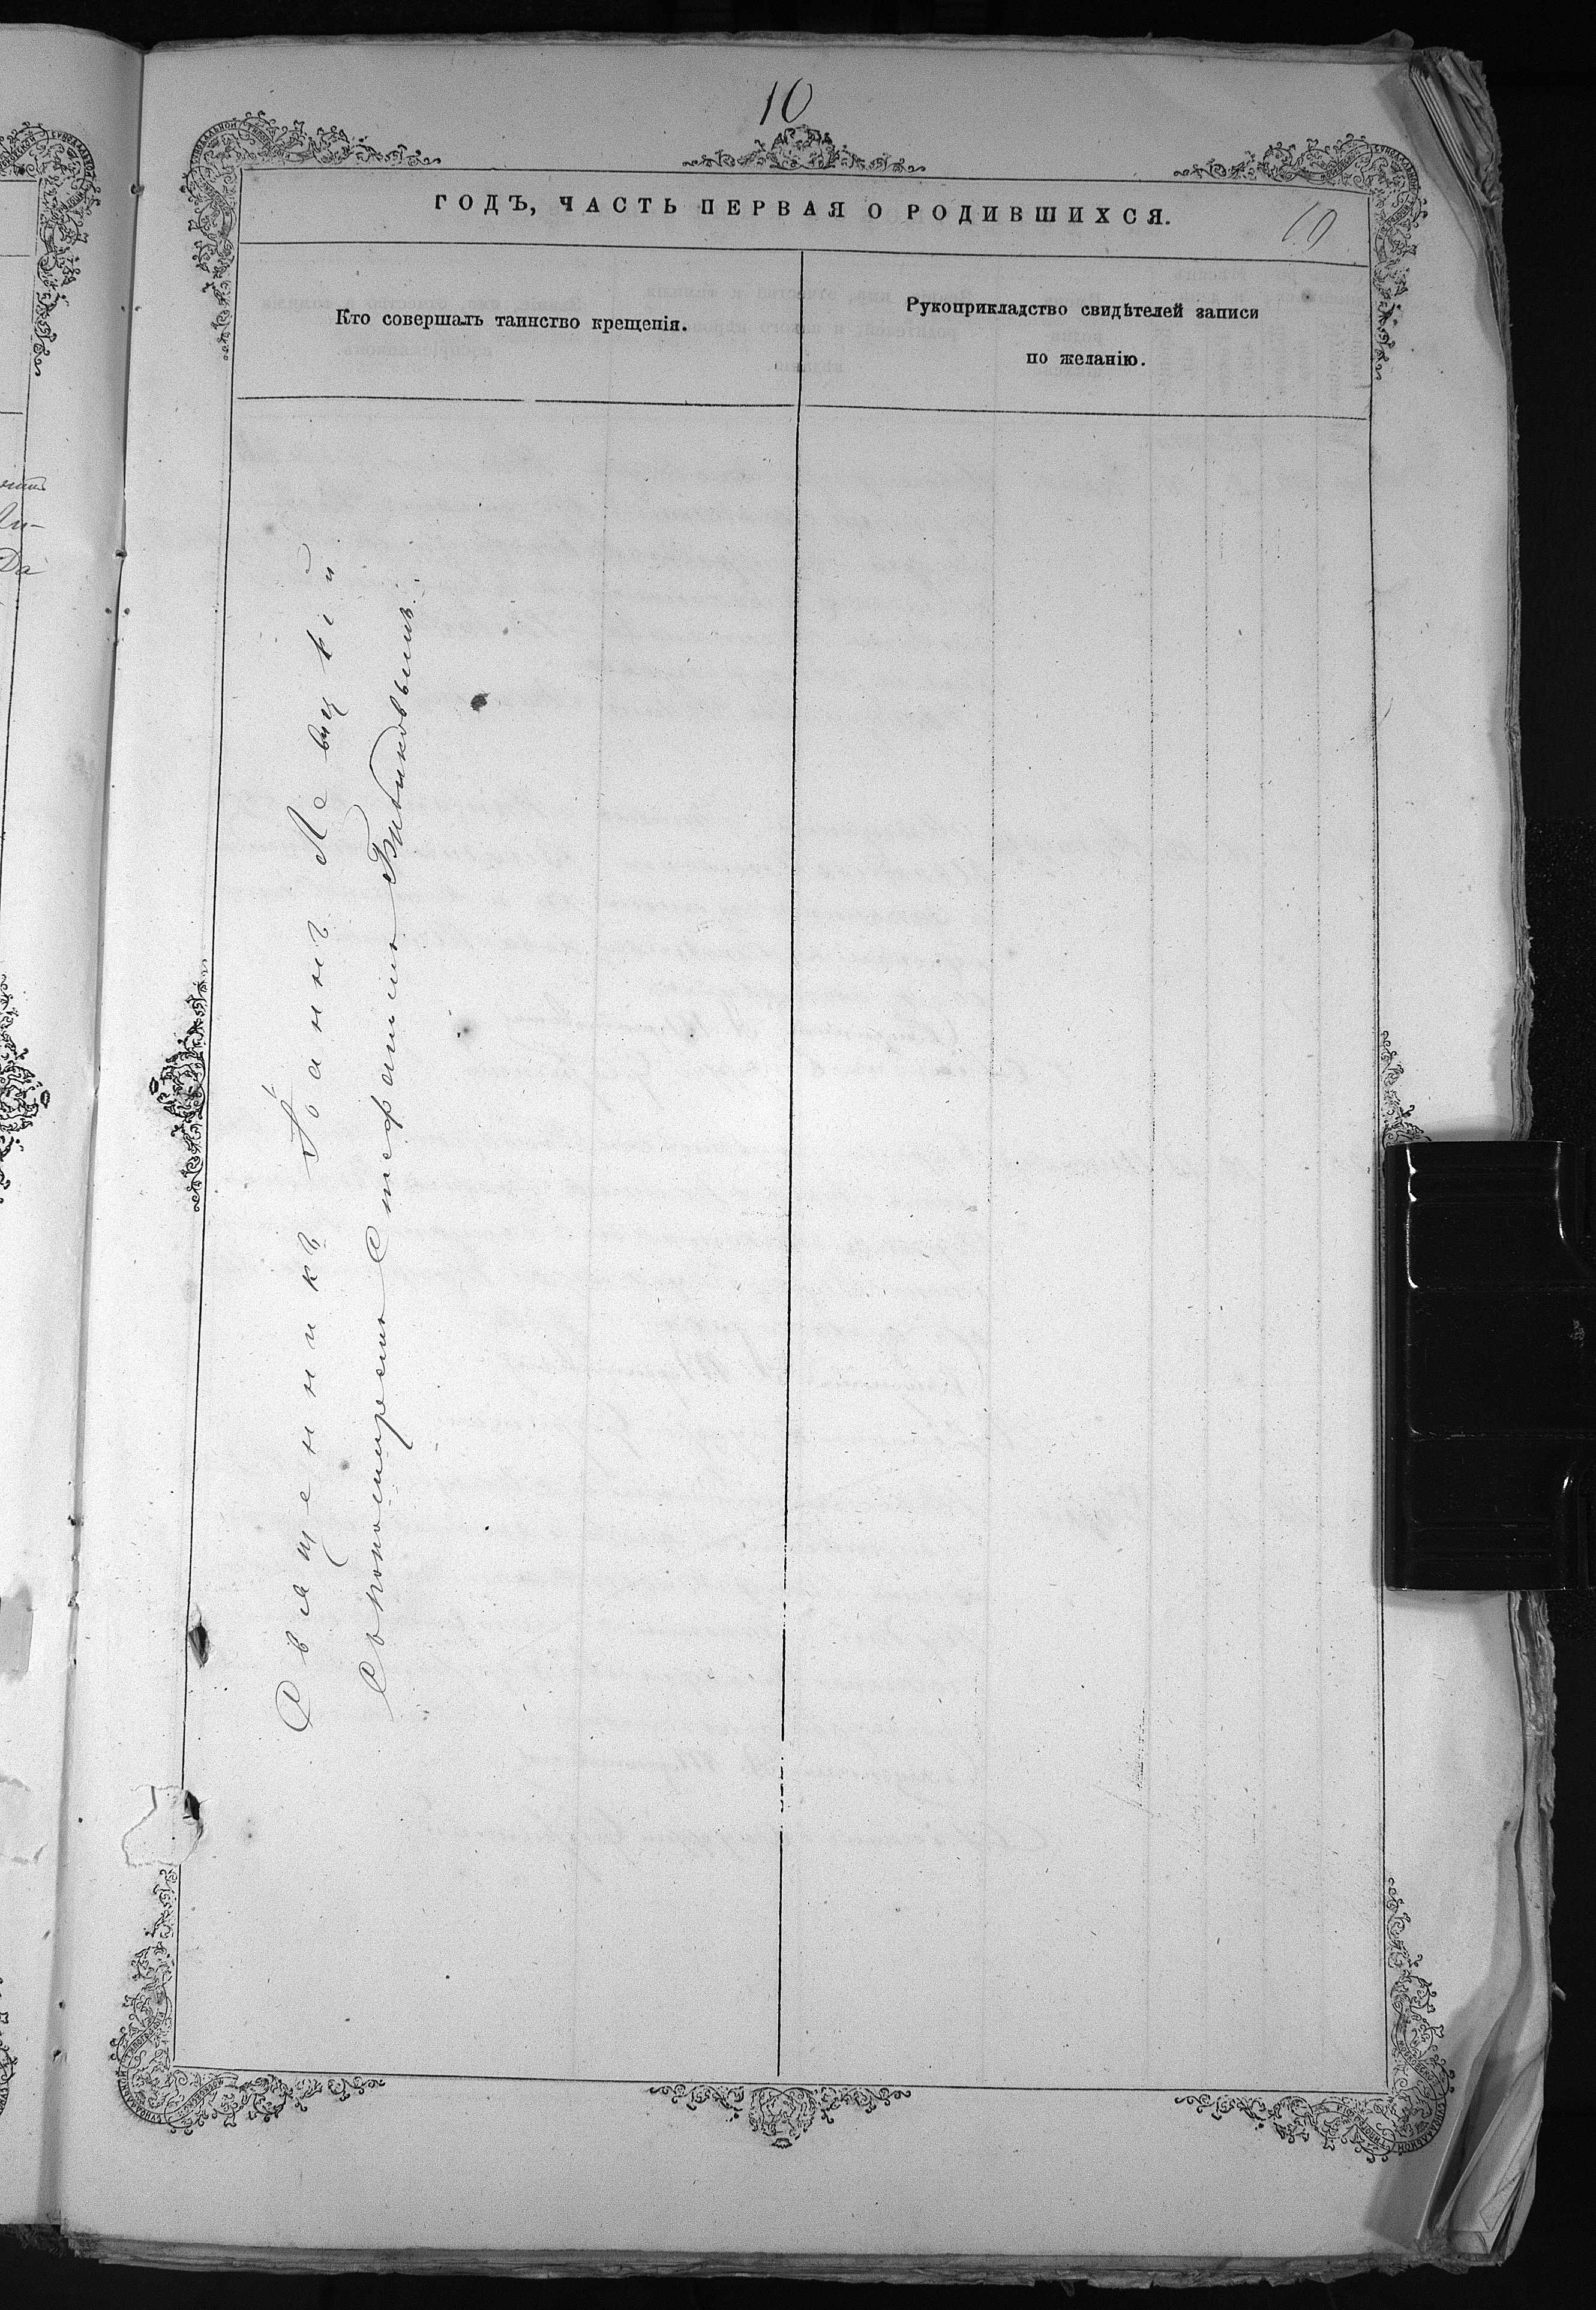 10
ГОДЪ, ЧАСТЬ ПЕРВАЯ О РОДИВШИХСЯ.
10
Кто совершалъ таинство крещенія.
Рукоприкладство свидѣтелей записи
по желанію.
Священникъ Іоаннъ Левицкій
Съ псаломщикомъ Стефаномъ Бибиковымъ.